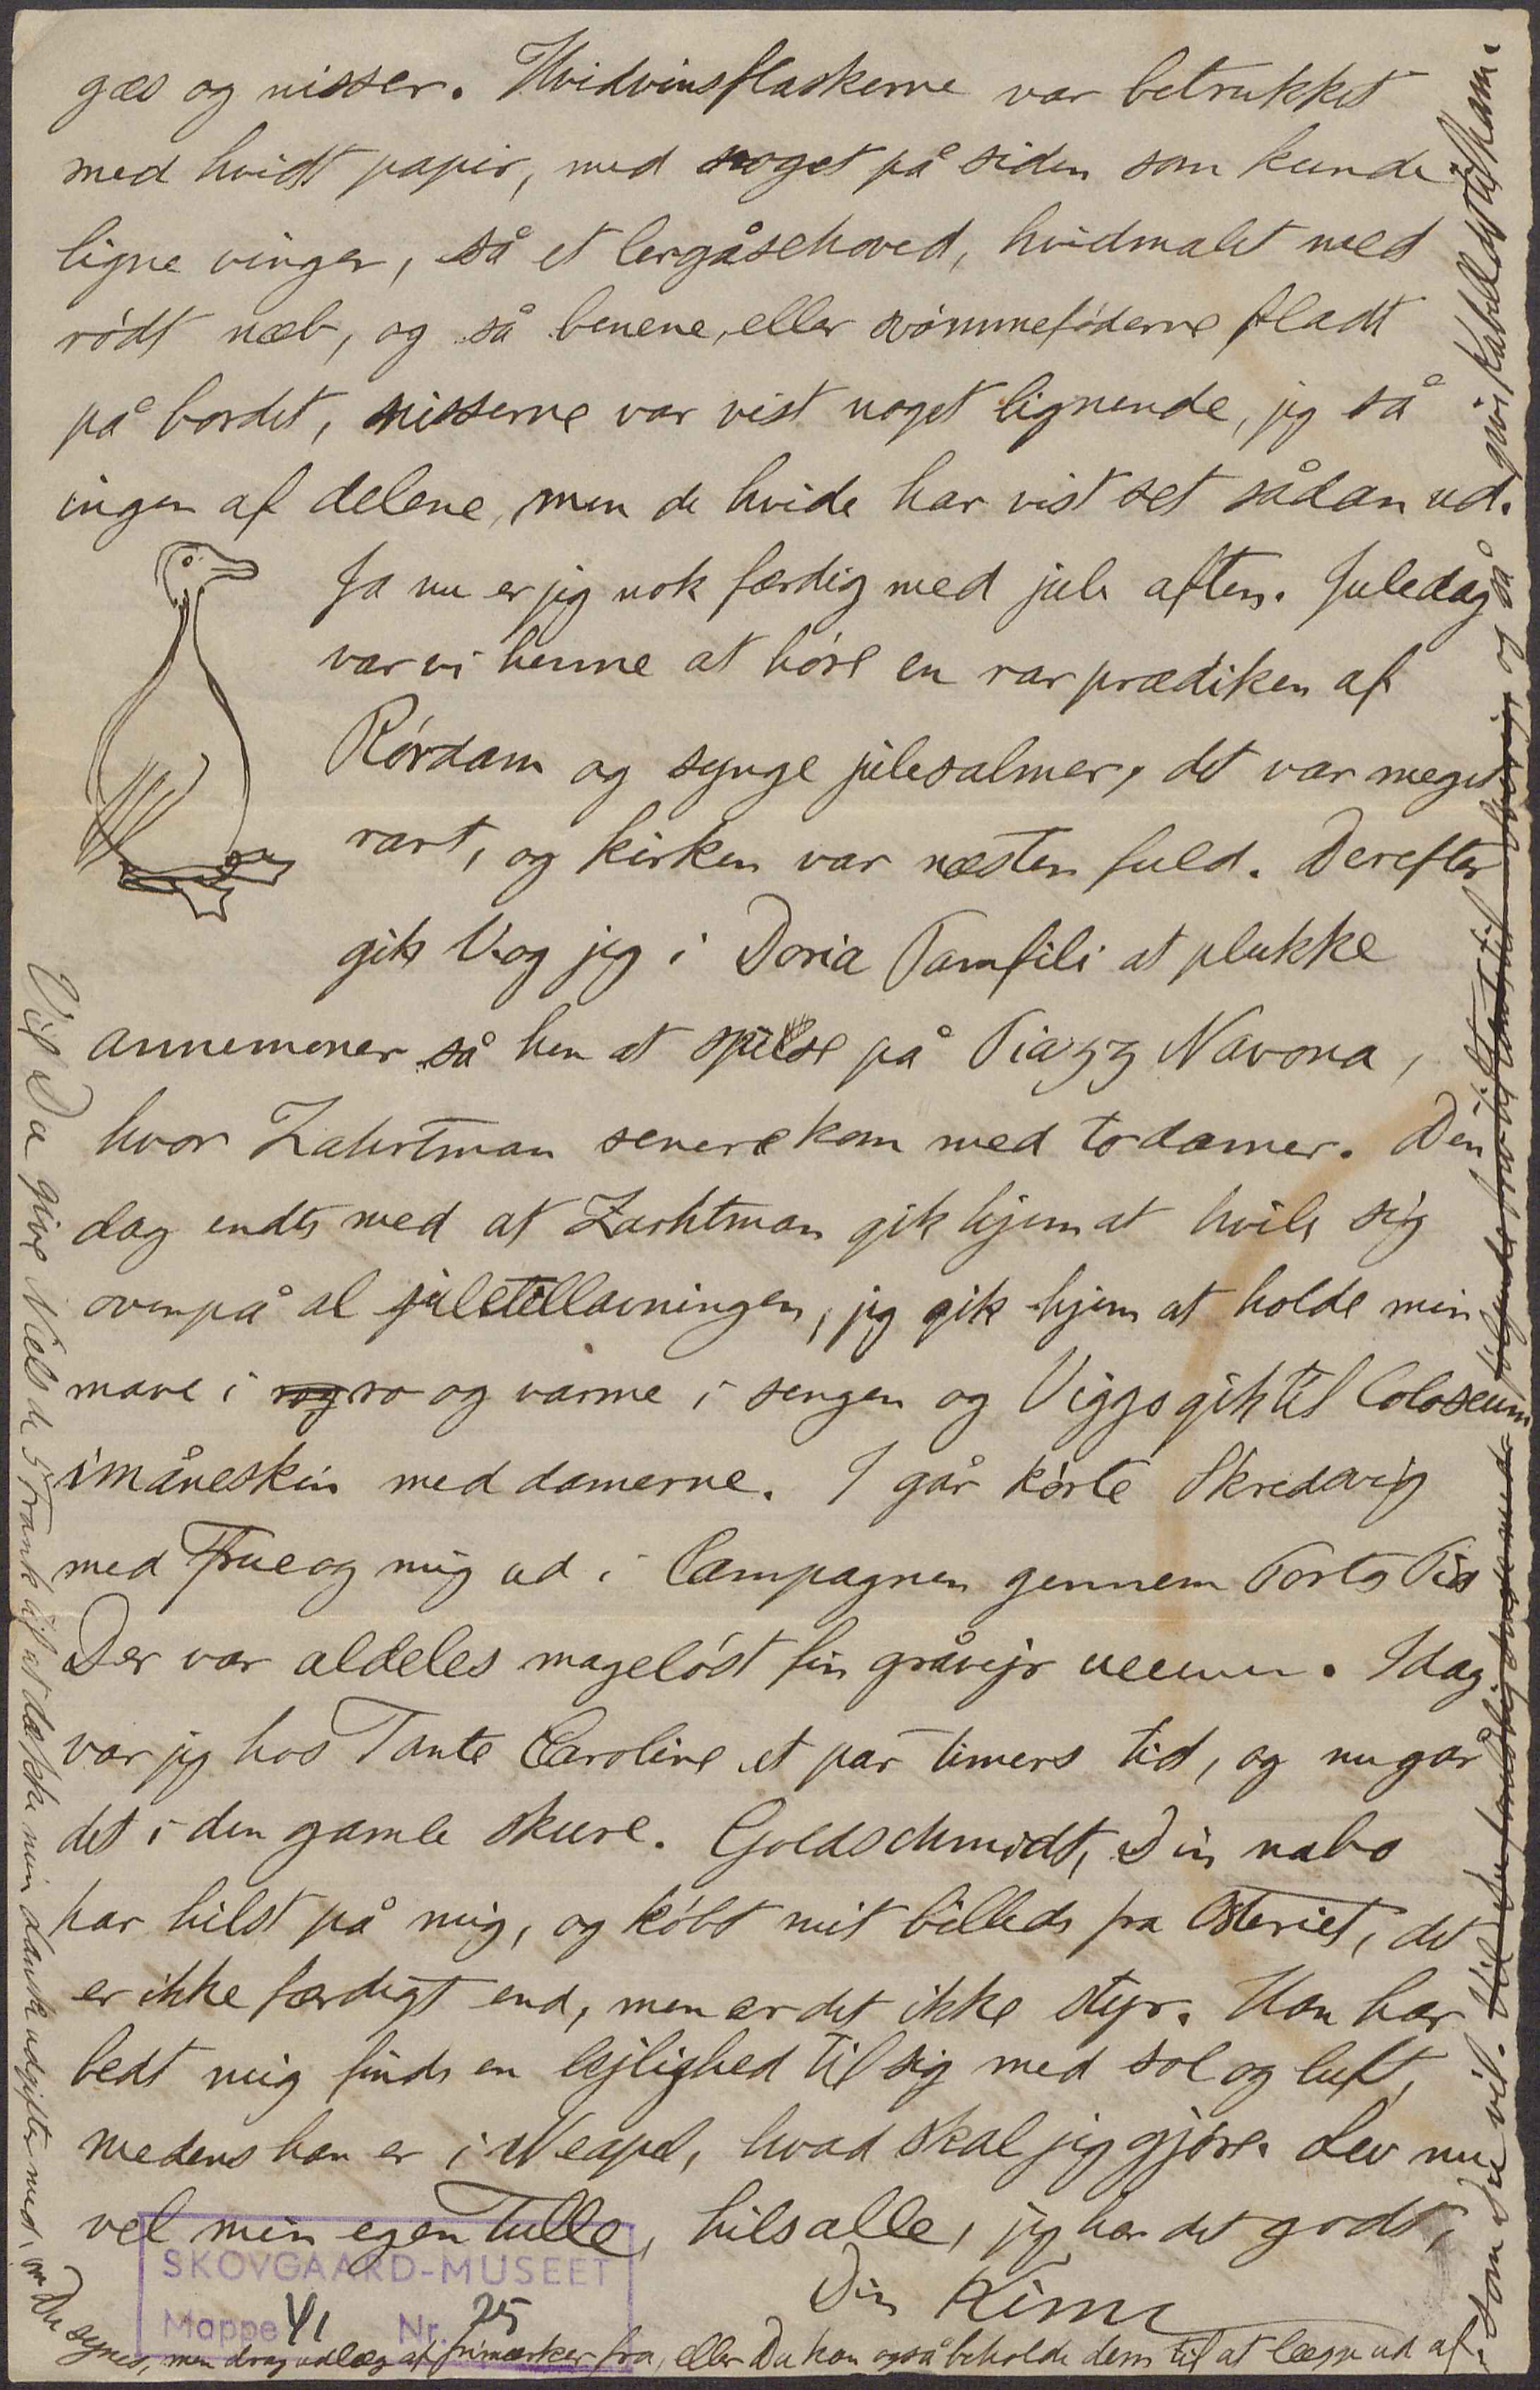 gæs og nisser. Hvidvinsflaskerne var betrukket
med hvidt papir, med noget på siden som kunde
ligne vinger, så et lergåsehoved, hvidmalet med
rödt næb, og så benene, eller svömmefóderne fladt
på bordet, nisserne var vist noget lignende, jeg så
ingen af delene, men de hvide har vist set sådan ud.
Ja nu er jeg nok færdig med jule aften. Juledag
var vi henne at hóre en rar prædiken af
Rórdam og synge julesalmer, det var meget
rart, og kirken var næsten fuld. Derefter
gik V. og jeg i Doria Pamfili at plukke
annemoner så hen at spise på Piazz Navona,
hvor Zahrtman senere kom med to damer. Den
dag endte med at Zarhtman gik hjem at hvile sig
ovenpå al juletillavningen, jeg gik hjem at holde min
mave i rog ro og varme i sengen og Viggo gik til Coloseum
i måneskin med damerne. I går kórte Skredsvig
med Frue og mig ud i Campagnen gennem Porta Pia
Der var aldeles magelóst fin gråvejr. Idag
var jeg hos Tante Caroline et par timers tid, og nu går
det i den gamle skure. Goldschmidt, Din nabo
har hilst på mig, og kóbt mit billede fra Osteriet, det
er ikke færdigt end, men er det ikke styr. Han har
bedt mig finde en lejlighed til sig med sol og luft,
medens han er i Neapel, hvad skal jeg gjóre. Lev nu
vel min egen Tulle, hils alle, jeg har det godt,
Din Rime
SKOVGAARD-MUSEET
Mappe 41 Nr. 25
Vil Da give Niels de 5 Frank til at dække min dansk udgifter med, om Du
synes, men drag udlæg af frimærker fra, eller Du kan også beholde dem til at lægge ud af
som du vil.
og så
giv Kabell dit til ham.